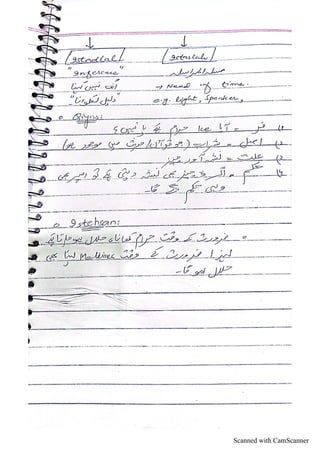 Istadlal Istaslah
"Inference"
"دلیل نکالنا" → Need of time.
e.g. Light, Speaker,
Qiyas:
فرع = آیا Ice حرام ہے یا نہیں؟
اصل = شراب (جو قرآن/حدیث میں موجود ہو)
علت = نشہ آور چیز
حکم = اگر چیز بھی نشہ دیتی ہے تو اس پر بھی
وہی حکم لگے گا۔
Istehsan:
ضرورت کے وقت حرام کھانا حلال ہو جاتا ہے
لہذا ضرورت کے وقت لینا بھی
حلال ہو گا۔
Scanned with CamScanner